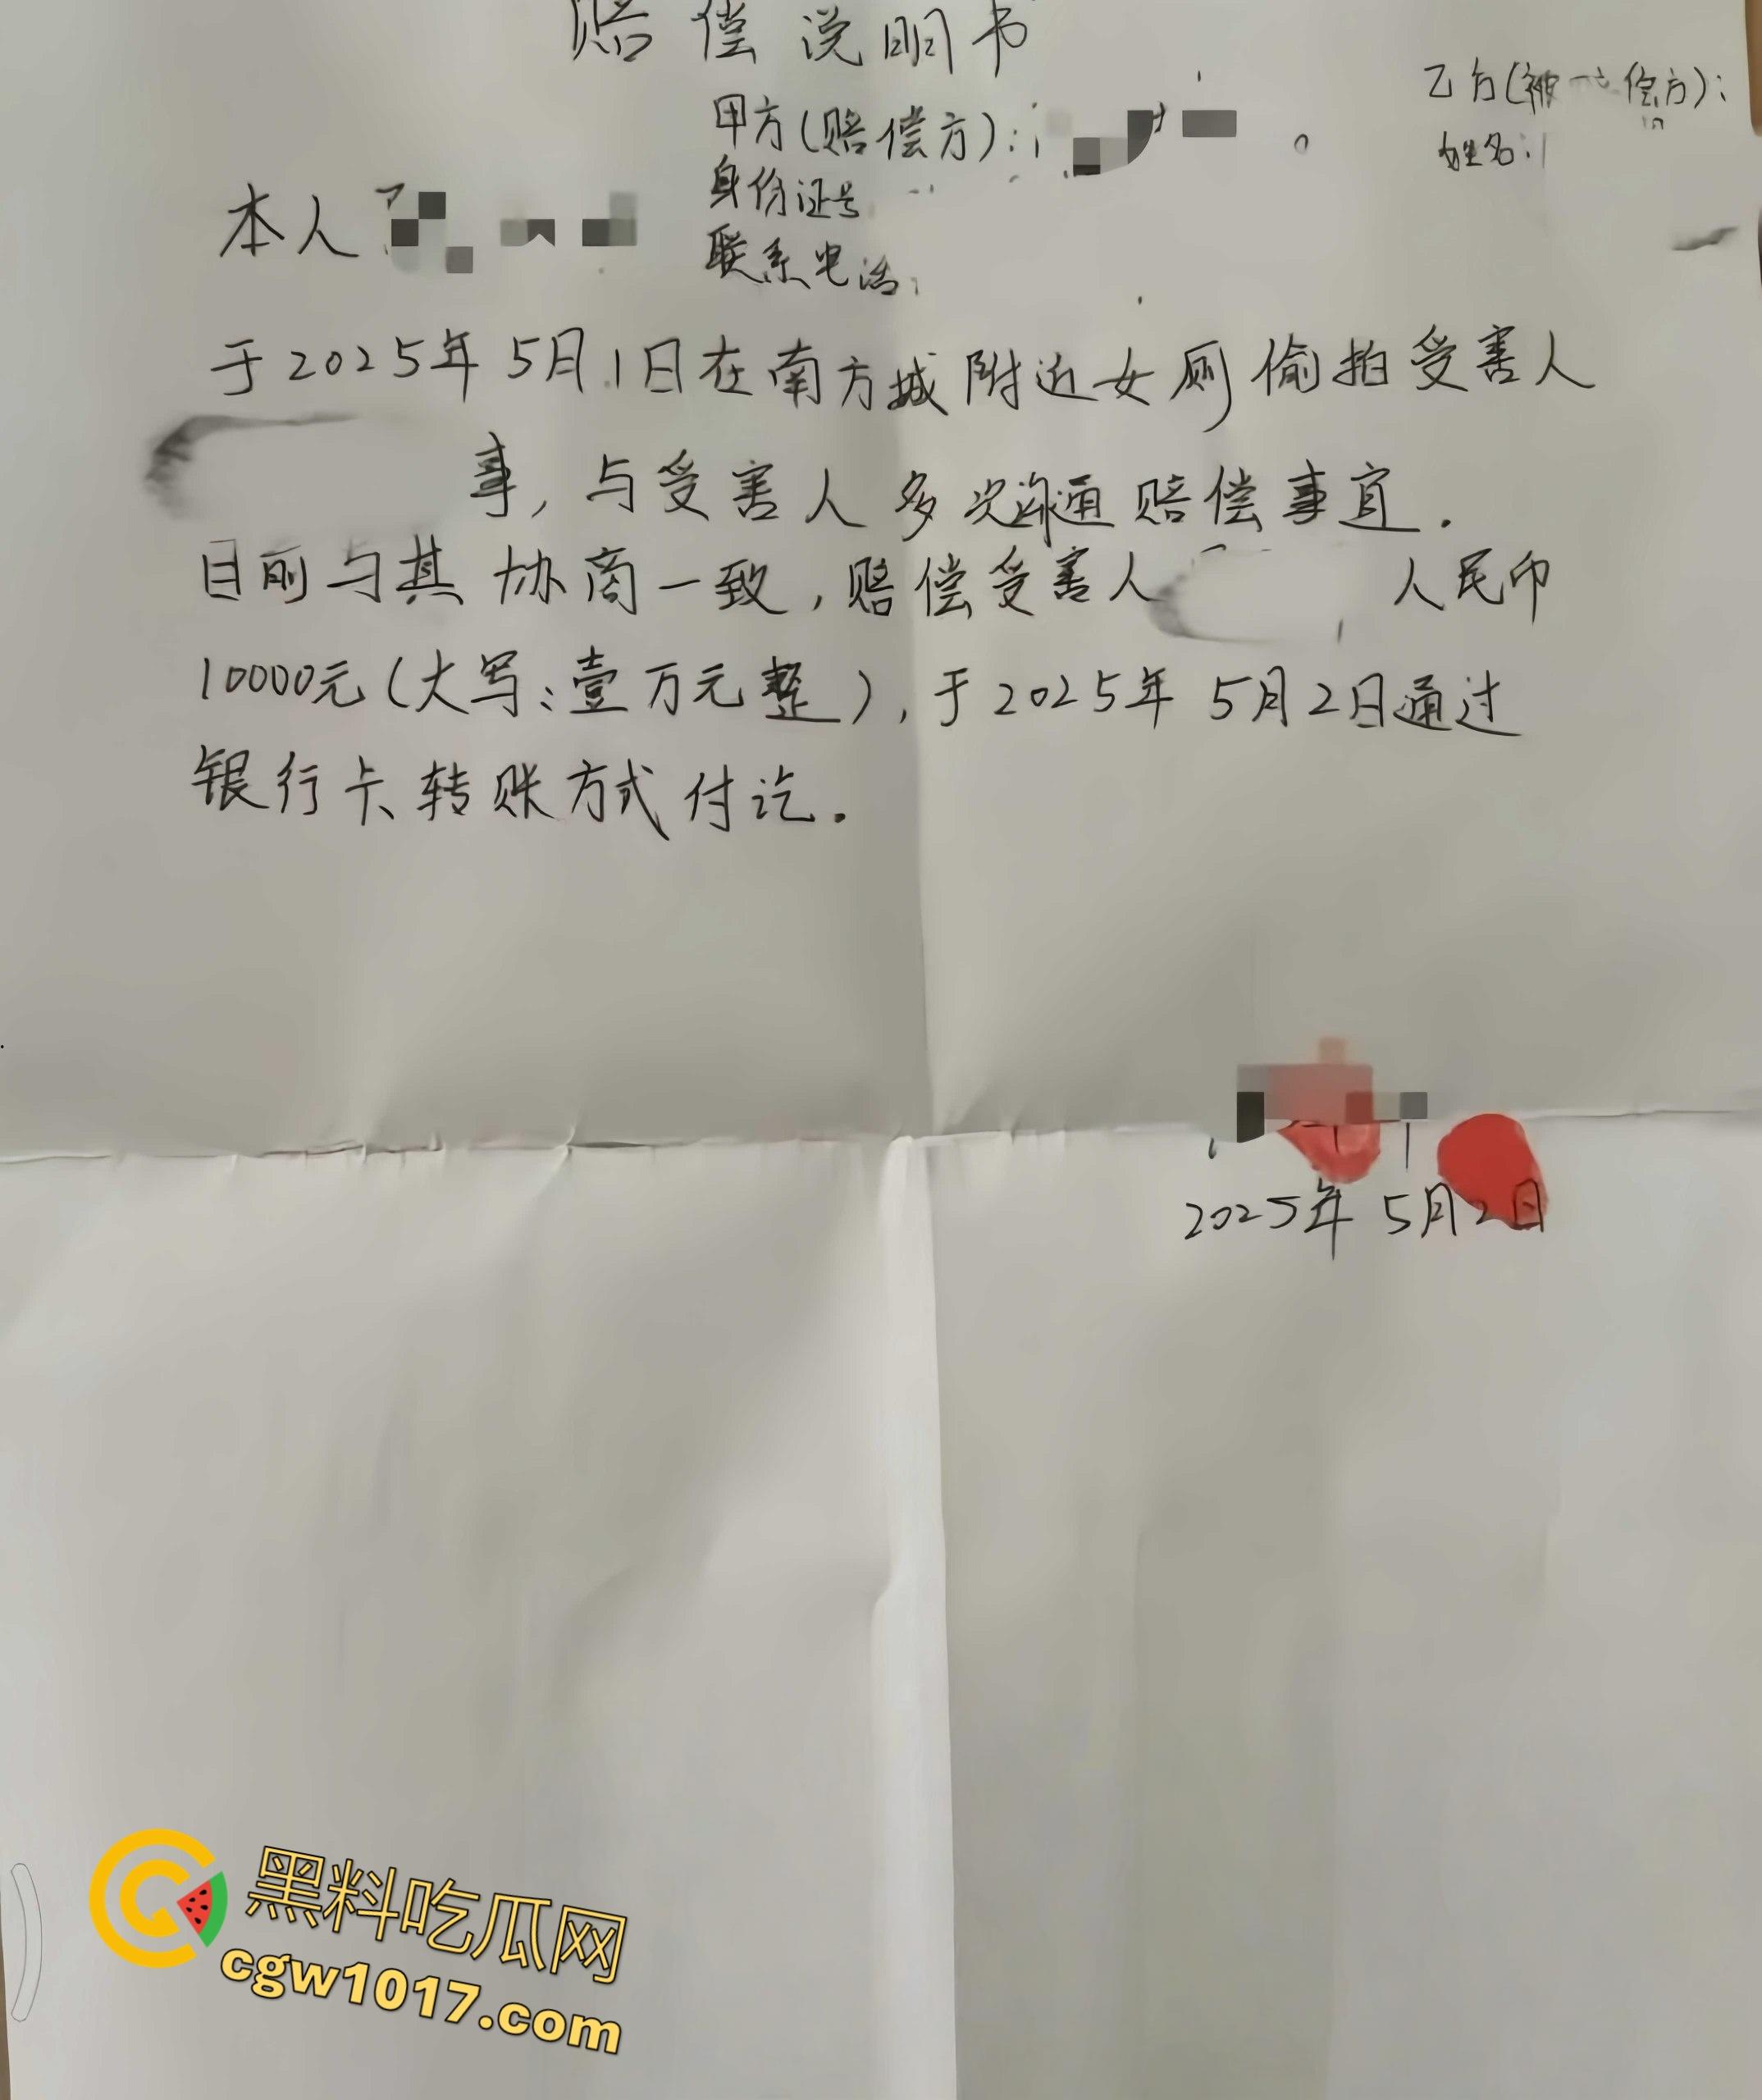 赔偿说明书
甲方(赔偿方):
身份证号
联系电话:
乙方(被偿方):
姓名:
本人
于2025年5月1日在南方城附近女厕偷拍受害人
事,与受害人多次沟通赔偿事宜.
目前与其协商一致,赔偿受害人 人民币
10000元(大写:壹万元整),于2025年5月2日通过
银行卡转账方式付讫.
2025年5月2日
黑料吃瓜网
cgw1017.com